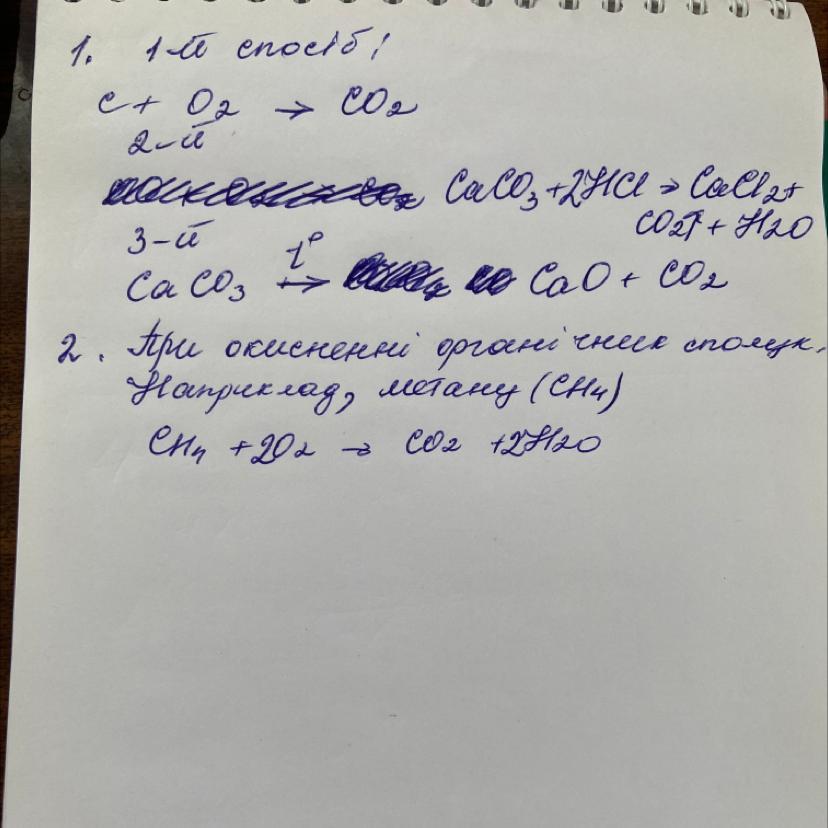 1. 1-й спосіб:
C + O2 → CO2
2-й
CaCO3 + 2HCl → CaCl2 +
CO2↑ + H2O
3-й
CaCO3 t° → CaO + CO2
2. При окисненні органічних сполук.
Наприклад, метану (CH4)
CH4 + 2O2 → CO2 + 2H2O